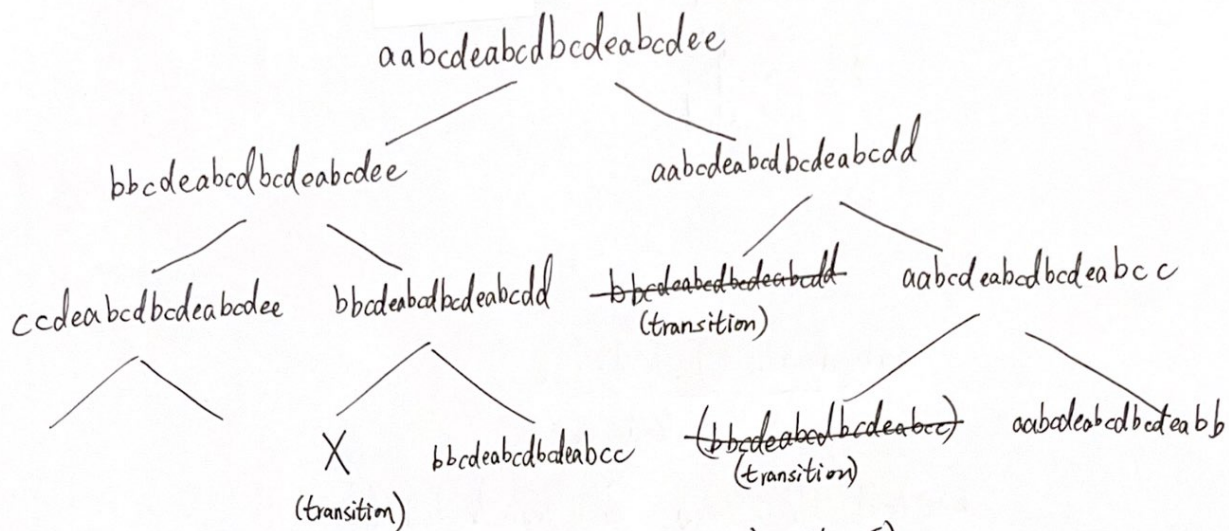 aabcdeabcdbcdeabcdee
bbcdeabcdbcdeabcdee
aabcdeabcdbcdeabcdd
ccdeabcdbcdeabcdee
bbcdeabcdbcdeabcdd
bbcdeabcdbcdeabcdd
(transition)
aabcdeabcdbcdeabcc
X
(transition)
bbcdeabcdbcdeabcc
(bbcdeabcdbcdeabcc)
(transition)
aabcdeabcdbcdeabb